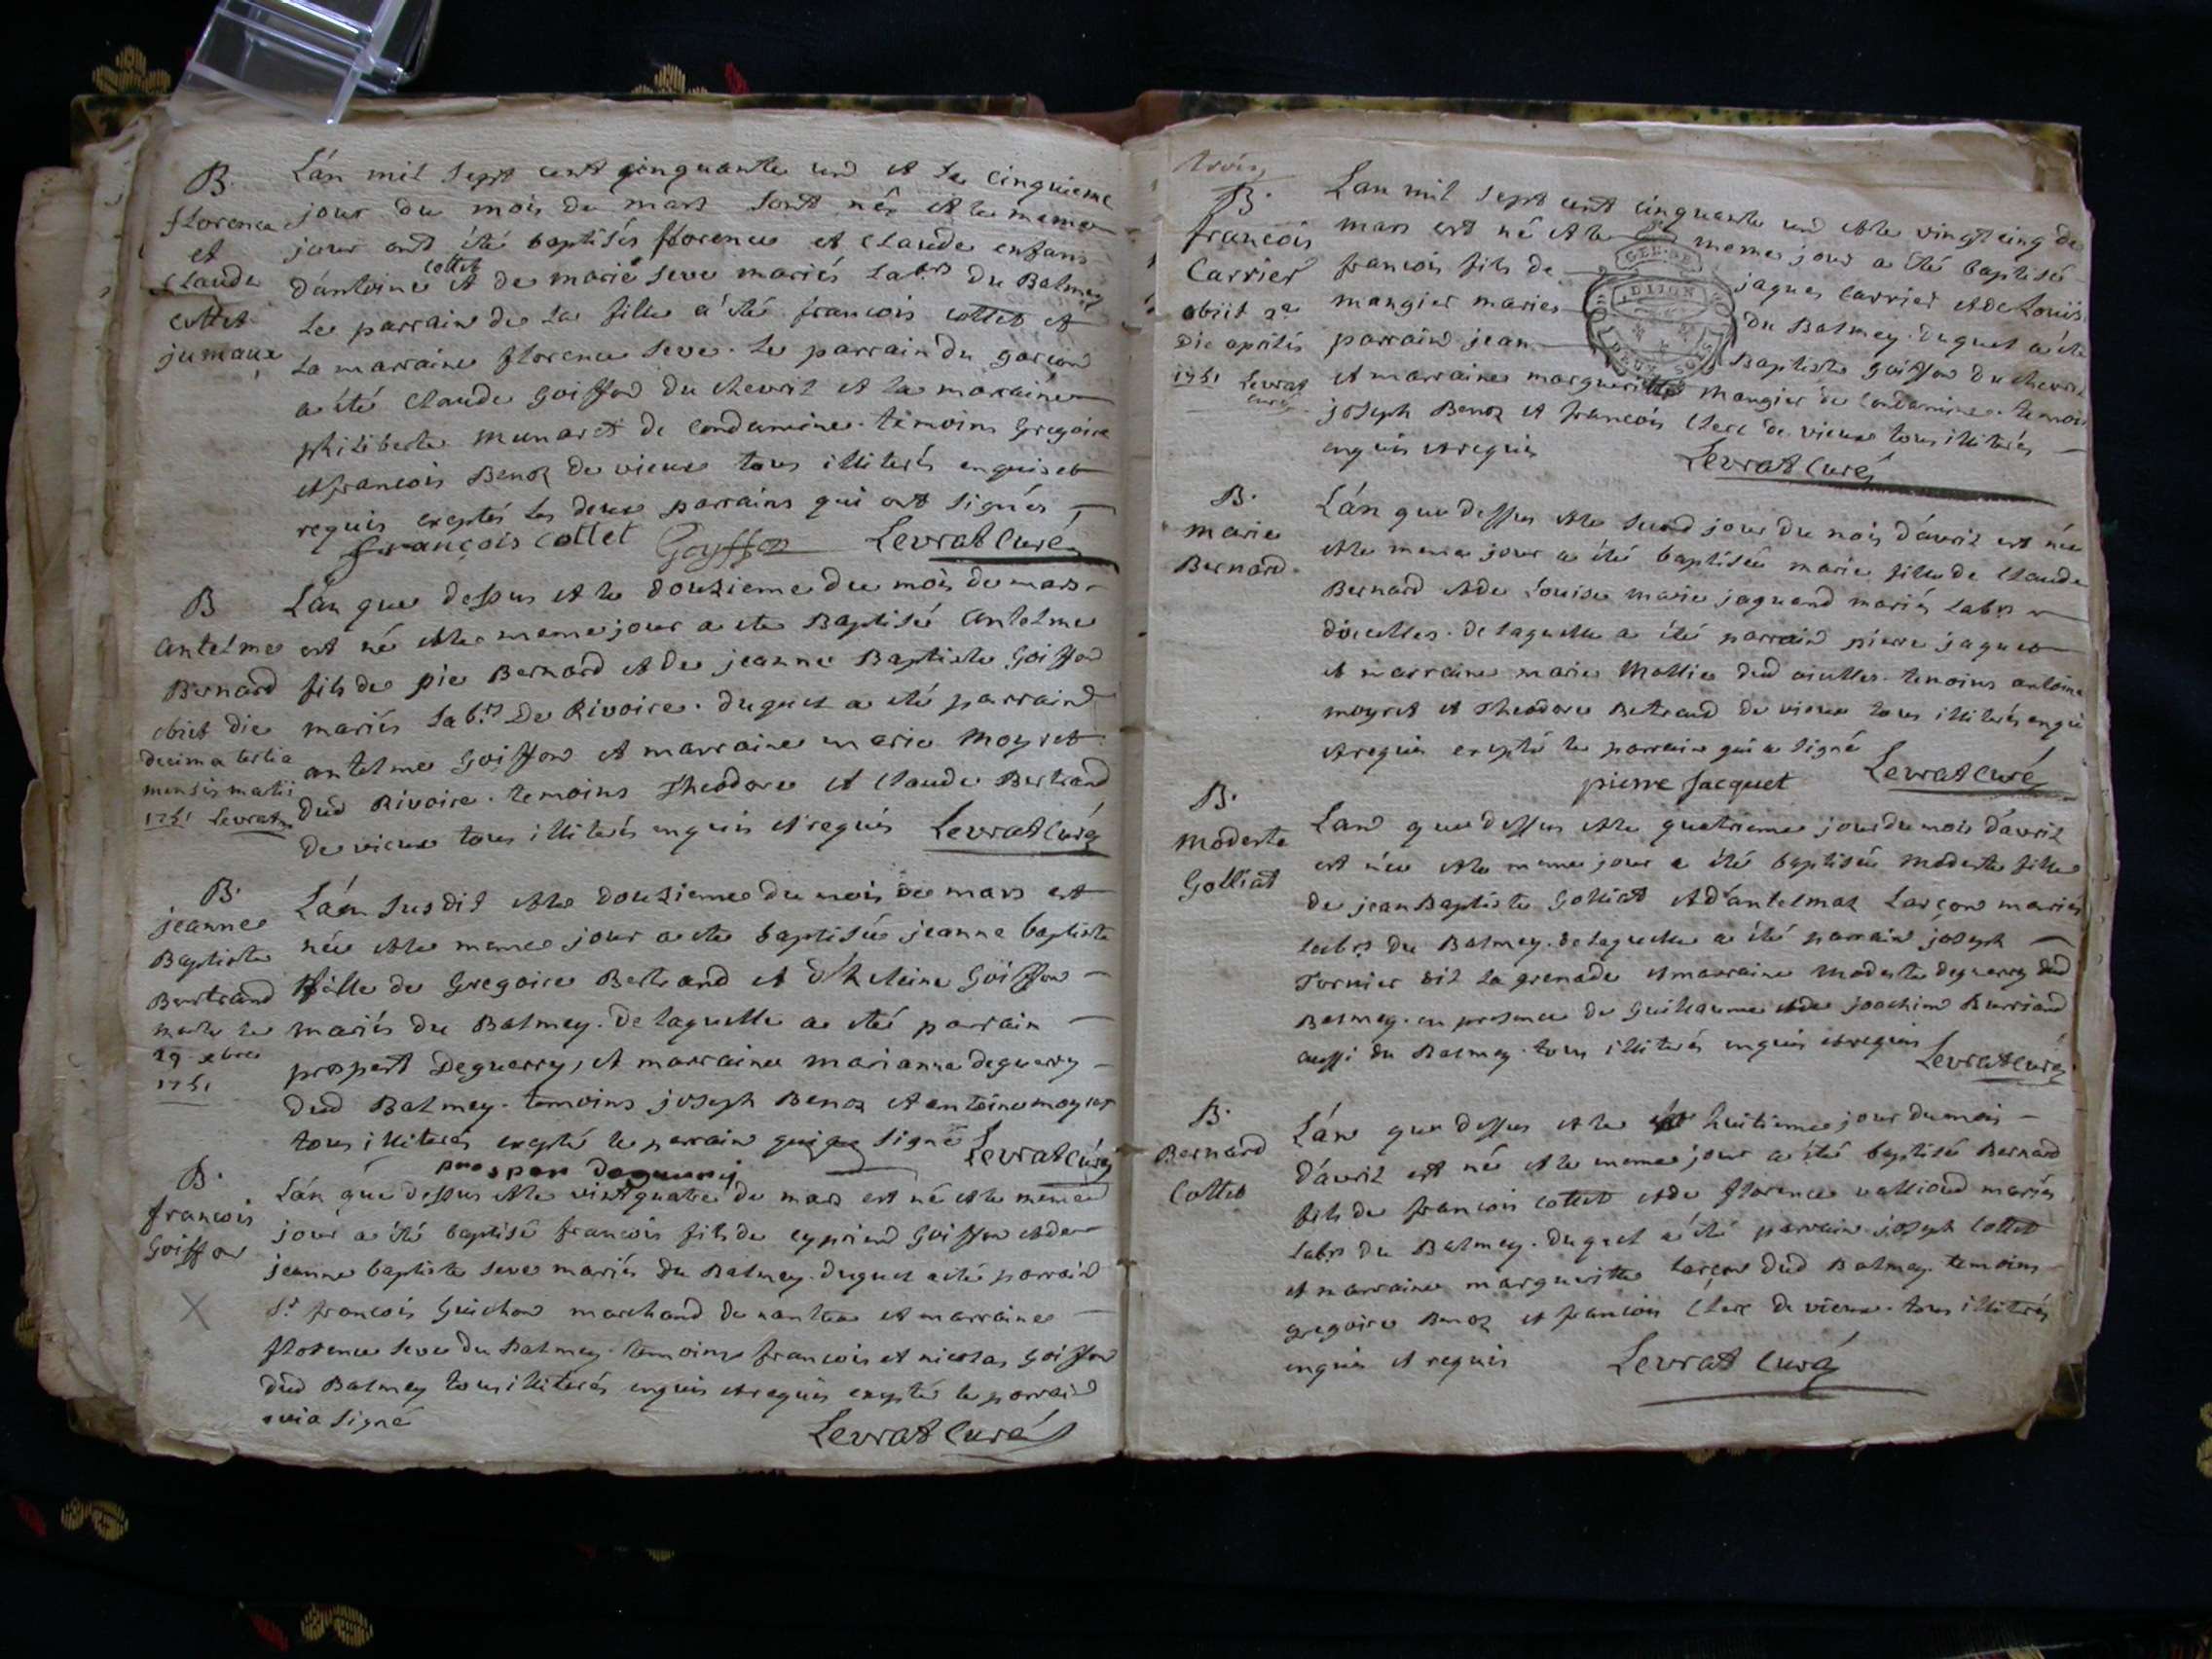 B.
florence
et
Claude
Cottet
jumaux
Lán mil sept cent cinquante und et Le Cinquieme
jour du mois de mars sont nés et le meme
jour ont été baptisés florence et Claude enfans
dántoine Cottet et de marie Seve mariés Labrs du Balmey
Le parrain de La fille a été francois Cottet et
La marraine florence Seve. Le parrain du garcon
a été Claude Goiffon du Chevril et la marraine
philiberte Munaret de Condamine. témoins Gregoire
et francois Benoz de vieux tous illiterés enquis et
requis exeptés Les deux parrains qui ont signés
françois Cottet Goyffon Levrat Curé
B
Antelme
Bernard
obiit die
decima tertia
mensis martii
1751 Levrat
Lán que dessus et le douzieme du mois de mars
est né et le meme jour a été Baptisé Antelme
fils de pie Bernard et de jeanne Baptiste Goiffon
mariés Labrs De Rivoire. duquel a été parraind
antelme Goiffon et marraine marie Moyret
dud Rivoire. temoins Theodore et Claude Bertrand
de vieux tous illiterés enquis et requis Levrat Curé
B.
jeanne
Baptiste
Bertrand
morte le
29 xbre
1751
Lán Susdit et le douzieme du mois de mars est
née et le meme jour a été baptisée jeanne baptiste
fille de Gregoire Bertrand et d'heleine Goiffon
mariés du Balmey. de laquelle a été parrain
prospert Deguerry, et marraine marianne deguerry
dud Balmey. temoins joseph Benoz et antoine moyret
tous illiterés exepté le parrain qui a signé Levrat Curé
prosper deguerry
B.
francois
Goiffon
X
Lán que dessus et le vint quatre de mars est né et le meme
jour a été baptisé francois fils de cypriend Goiffon et de
jeanne baptiste Seve mariés du Balmey. duquel a été parraind
Sr francois Guichon marchand de nantua et marraine
florence Seve du Balmey. temoins francois et nicolas Goiffon
dud Balmey tous illiterés enquis et requis exepté le parraind
qui a signé
Levrat Curé
trois
B.
francois
Carrier
obiit 2a
die aprilis
1751 Levrat
Curé
Lan mil sept cent cinquante und et le vingt cinq de
mars est né et le meme jour a été baptisé
francois fils de jaques Carrier et de Louise
mangier maries du Balmey. duquel a été
parraind jean Baptiste Goiffon du Chevril
et marraine marguerite Mangier de Condamine. temoins
joseph Benoz et francois Clerc de vieux tous illiterés
enquis et requis Levrat Curé
GEN. DE
DIJON
DEUX SOLS
B.
Marie
Bernard
Lán que dessus et le second jour du mois d'avril est née
et le meme jour a été baptisée marie fille de Claude
Bernard et de Louise marie jaquand mariés Labrs
d'oeulles. de laquelle a été parraind pierre jaquet
et marraine marie Mollie dud oeulles. temoins antoine
moyret et Theodore Betrand de vieux tous illiterés enquis
et requis exepté le parrain qui a signé
pierre Jacquet Levrat Curé
B.
Modeste
Golliat
Land que dessus et le quatrieme jour du mois d'avril
est née et le meme jour a été baptisée Modeste fille
de jean Baptiste Golliat et d'antelmaz Larçon mariés
Labrs du Balmey. de laquelle a été parrain joseph
Tornier dit La grenade et marraine Modeste deguerry dud
Balmey. en presence de Guillaume et de joachim Burriand
aussi du Balmey. tous illiterés enquis et requis
Levrat Curé
B.
Bernard
Cottet
Lán que dessus et le huitieme jour du mois
d'avril est né et le meme jour a été baptisé Bernard
fils de francois Cottet et de florence valliond mariés
Labrs du Balmey. duquel a été parrain joseph Cottet
et marraine marguerite Larçon dud Balmey. temoins
gregoire Benoz et francois Clerc de vieux. tous illiterés
enquis et requis Levrat Curé